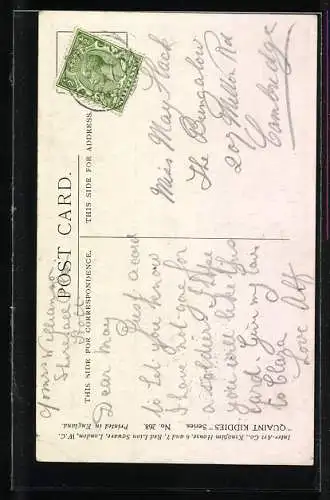 POST CARD.
THIS SIDE FOR CORRESPONDENCE.
THIS SIDE FOR ADDRESS.
c/o Mrs Williamson
Dear May
Just a card
to let you know
I have got gone for
a soldier I hope
you will like this
card. Give my love
to
Love Alf
Miss May Slack
The Bungalow
207 Milton Rd
Cambridge
"QUAINT KIDDIES" Series. No. 268.
Inter-Art Co., Kingsim House, 6 and 7, Red Lion Square, London, W.C.
Printed in England.